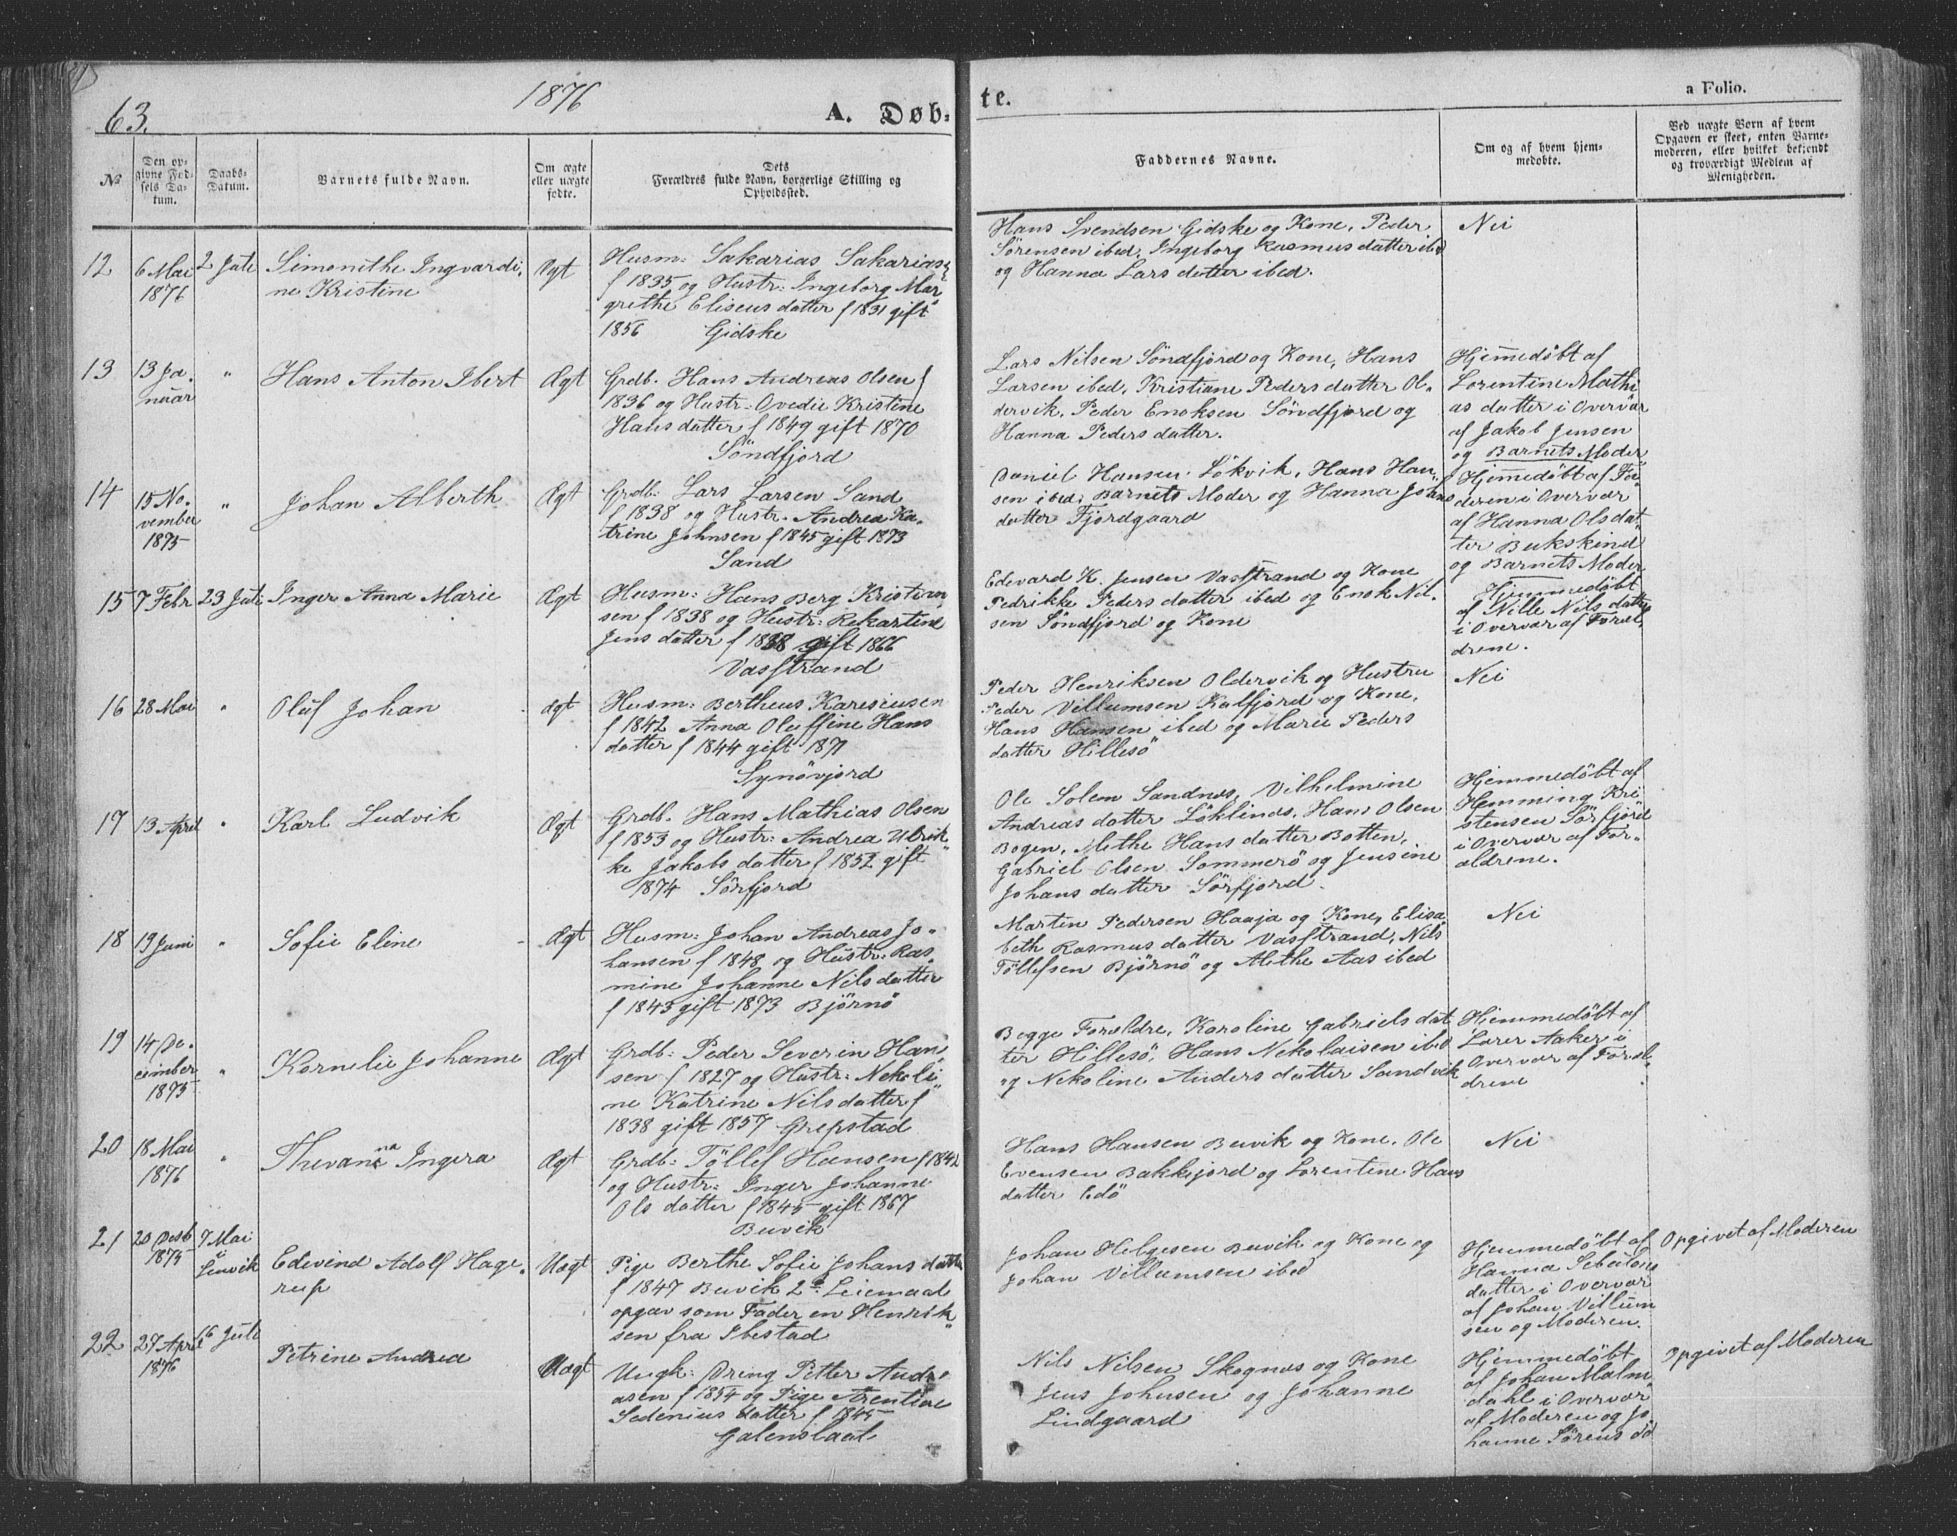 63.
1876
A. Døb-
te.
a Folio.
№
Den op-
givne Fød-
sels Da-
tum.
Daabs-
Datum.
Barnets fulde Navn.
Om ægte
eller uægte
fødte.
Dets
Forældres fulde Navn, borgerlige Stilling og
Opholdssted.
Faddernes Navne.
Om og af hvem hjem-
medøbte.
Ved uægte Børn af hvem
Opgaven er skeet, enten Barne-
moderen, eller hvilket bekjendt
og troværdigt Medlem af
Menigheden.
12
6 Mai
1876
2 Juli
Simonithe Ingvardi,
ne Kristine
Ægt
Husm: Sakarias Sakarias,
f 1835 og Hustr: Ingeborg Mar
grethe Eliseus datter f 1831 gift
1856 Gidske
Hans Svendsen Gidske og Kone, Peder
Sörensen ibed, Ingeborg Rasmus datter ibd
og Hanna Lars datter ibed.
Nei
13
13 Ja.
nuar
"
Hans Anton Ibert
Ægt
Grdb. Hans Andreas Olsen f
1836 og Hustr: Ovedie Kristine
Hans datter f 1849 gift 1870
Söndfjord
Lars Nilsen Söndfjord og Kone, Hans
Larsen ibed, Kristiane Peders datter Ol-
dervik, Peder Enoksen Söndfjord og
Hanna Peders datter.
Hjemedöbt af
Lorentine Mathi
as datter i Overvär
af Jakob Jensen
og Barnets Moder
14
15 No.
vember
1875
"
Johan Alberth
Ægt
Grdb: Lars Larsen Sand
f 1838 og Hustr. Andrea Ka,
trine Johnsen f 1845 gift 1873
Sand
Daniel Hansen Lökvik, Hans Han,
sen ibed, Barnets Moder og Hanna Johns
datter Fjordgaard
Hjemedöbt af Fa
deren i Overvär
af Hanna Olsdat,
ter Bukskind
og Barnets Moder
15
7 Febr
23 Juli
Inger Anna Marie
Ægt
Husm: Hans Berg Kristian
sen f 1838 og Hustr: Rekartine
Jens datter f 1838 gift 1866
Vasstrand
Edevard K. Jensen Vasstrand og Kone
Pedrikke Peders datter ibed og Enok Nil-
sen Söndfjord og Kone
Hjemmedöbt
af Nille Nils datter
i Overvär af Foræl,
drene.
16
28 Mai
"
Oluf Johan
Ægt
Husm: Bertheus Karesiusen
f 1842 Anna Oleffine Hans
datter f 1844 gift 1871
Synövjord
Peder Henriksen Oldervik og Hustru
Peder Villumsen Kalfjord og Kone,
Hans Hansen ibed og Marie Peders
datter Hillesö
Nei
17
13 April
"
Karl Ludvik
Ægt
Grdb. Hans Mathias Olsen
f 1853 og Hustr: Andrea Ulrik,
ke Jakobs datter f 1852 gift
1874 Sörfjord
Ole Solem Sandnes, Vilhelmine
Andreas datter Löklinds, Hans Olsen
Bogen, Methe Hans datter Botten,
Gabriel Olsen Sommerö og Jensine
Johans datter Sörfjord.
Hjemmedöbt af
Hemming Kri
stensen Sörfjörd
i Overvær af For-
ældrene.
18
19 Juni
"
Sofie Eline
Ægt
Husm: Johan Andreas Jo-
hansen f 1848 og Hustr: Ras,
mine Johanne Nils datter
f 1845 gift 1873 Björnö
Martin Pedersen Haaja og Kone, Elisa
beth Rasmus datter Vasstrand, Nils
Töllefsen Björnö og Alethe Aas ibed
Nei
19
14 De-
cember
1875
"
Kornelie Johanne
Ægt
Grdb: Peder Severin Han,
sen f 1827 og Hustr: Nekoli
ne Katrine Nils datter f
1838 gift 1857 Grepstad
Begge Forældre, Karoline Gabriels dat
ter Hillesö, Hans Nekolaisen ibed
og Nekoline Anders datter Sandvik
Hjemmedöbt af
Lorer Aaker i
Overvær af Foræl-
drene
20
18 Mai
1876
"
Thevanna Ingera
Ægt
Grdb: Töllef Hansen f 1842
og Hustr: Inger Johanne
Ols datter f 1845 gift 1867
Buvik
Hans Hansen Buvik og Kone, Ole
Evensen Bakkejord og Lorentine Hans
datter Edö
Nei
21
20 Desb
1875
7 Mai
i
Lenvik
Edevind Adolf Hage,
rup
Uægt
Pige Berthe Sofie Johans datter
f 1847 Buvik 2det Leiemaal
opgav som Fader en Henrik
sen fra Ibestad
Johan Helgesen Buvik og Kone og
Johan Villumsen ibed
Hjemmedöbt af
Hanna Sebulons
datter i Overvær
af Johan Villum
sen og Moderen.
Opgivet af Moderen
22
27 April
1876
16 Juli
Petrine Andrea
Uægt
Ungk: Dreng Petter Andre
asen f 1854 og Pige Arentine
Sedenius datter f 1845
Galenslaat
Nils Nilsen Skognes og Kone
Jens Johnsen og Johanne
Lindgaard
Hjemmedöbt
af Johan Malm
dahl i Overvær
af Moderen og Jo
hanne Sörens dd
Opgivet af Moderen